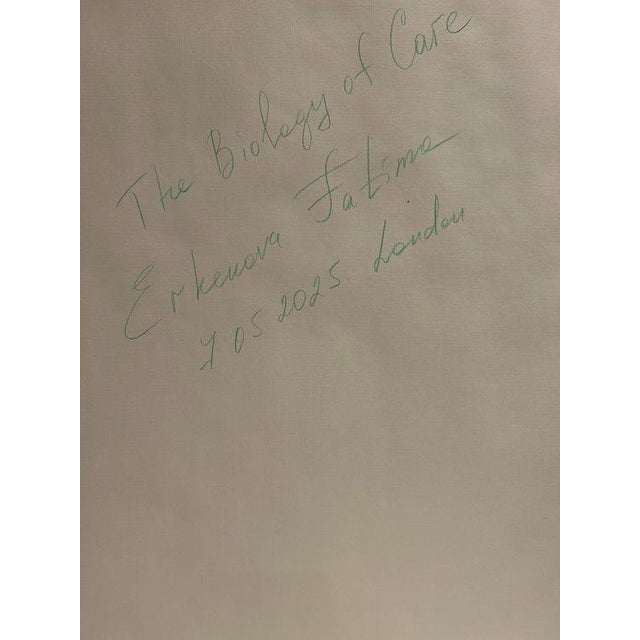 The Biology of Care
Erkenova Fatima
7 05 2025 London